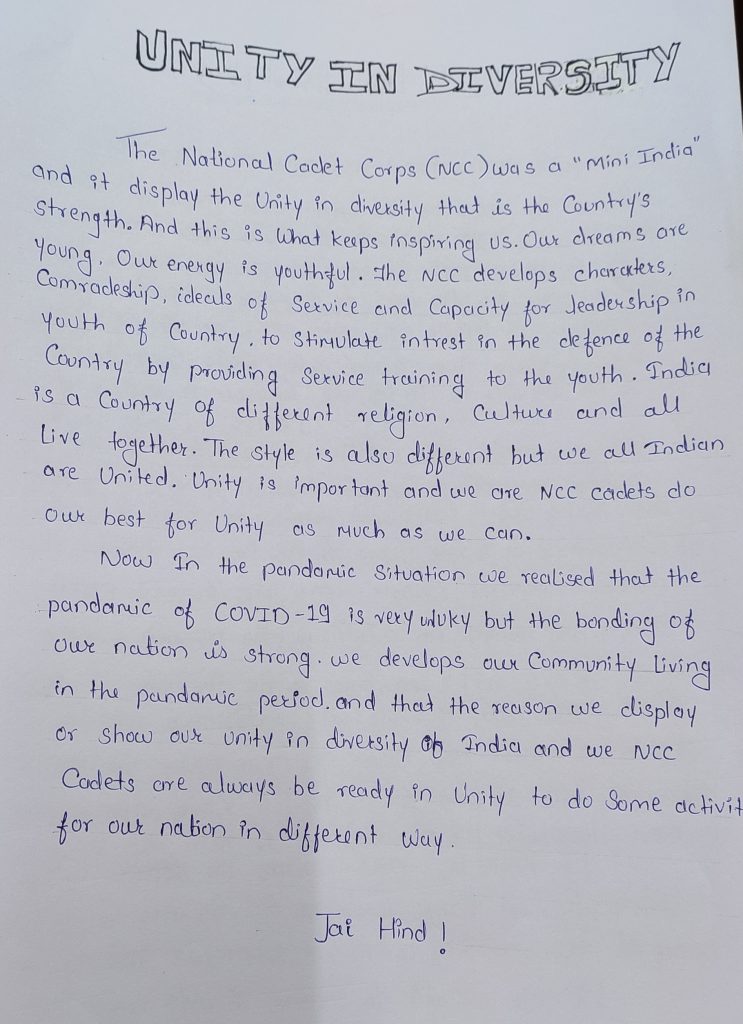 UNITY IN DIVERSITY
The National Cadet Corps (NCC) was a "mini India"
and it display the Unity in diversity that is the Country's
strength. And this is what keeps inspiring us. Our dreams are
young. Our energy is youthful. The NCC develops charcters,
Comradeship, ideals of Service and Capacity for leadership in
youth of Country. to stimulate intrest in the defence of the
Country by providing Service training to the youth. India
is a Country of different religion, Culture and all
Live together. The style is also different but we all Indian
are United. Unity is important and we are NCC cadets do
our best for Unity as much as we can.
Now In the pandamic Situation we realised that the
pandamic of COVID-19 is very unluky but the bonding of
our nation is strong. we develops our Community Living
in the pandamic period. and that the reason we display
or show our unity in diversity of India and we NCC
Cadets are always be ready in Unity to do Some activit
for our nation in different way.
Jai Hind!